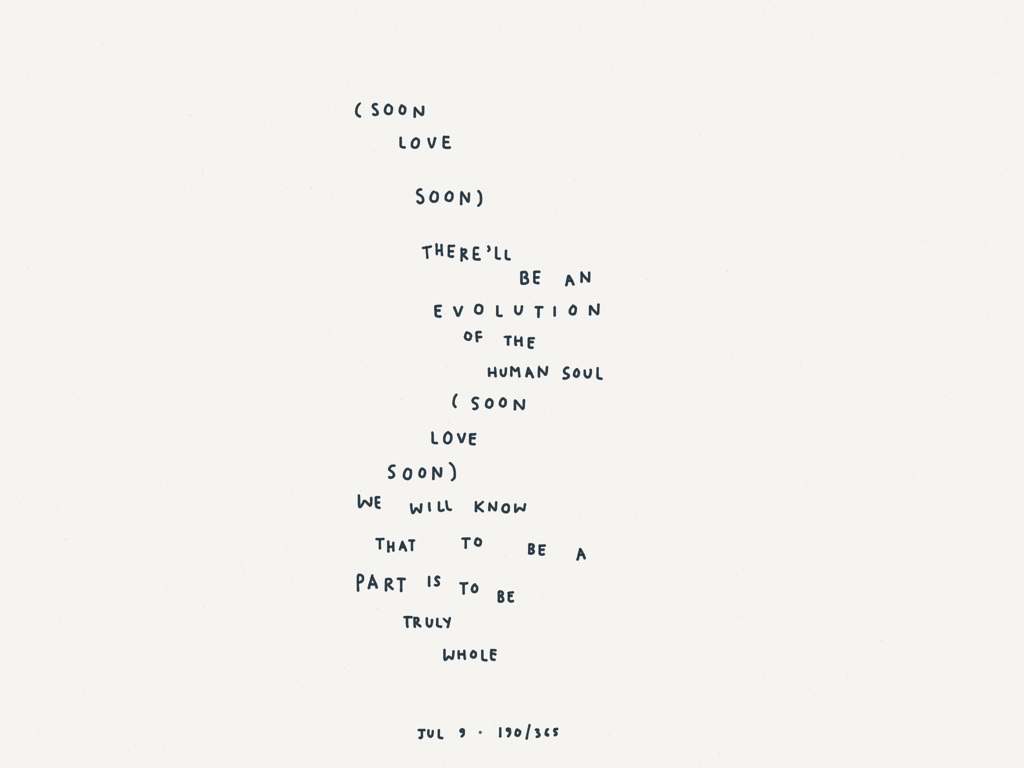 (SOON
LOVE
SOON)
THERE'LL
BE AN
EVOLUTION
OF THE
HUMAN SOUL
(SOON
LOVE
SOON)
WE WILL KNOW
THAT TO BE A
PART IS TO BE
TRULY
WHOLE
JUL 9 · 190/365